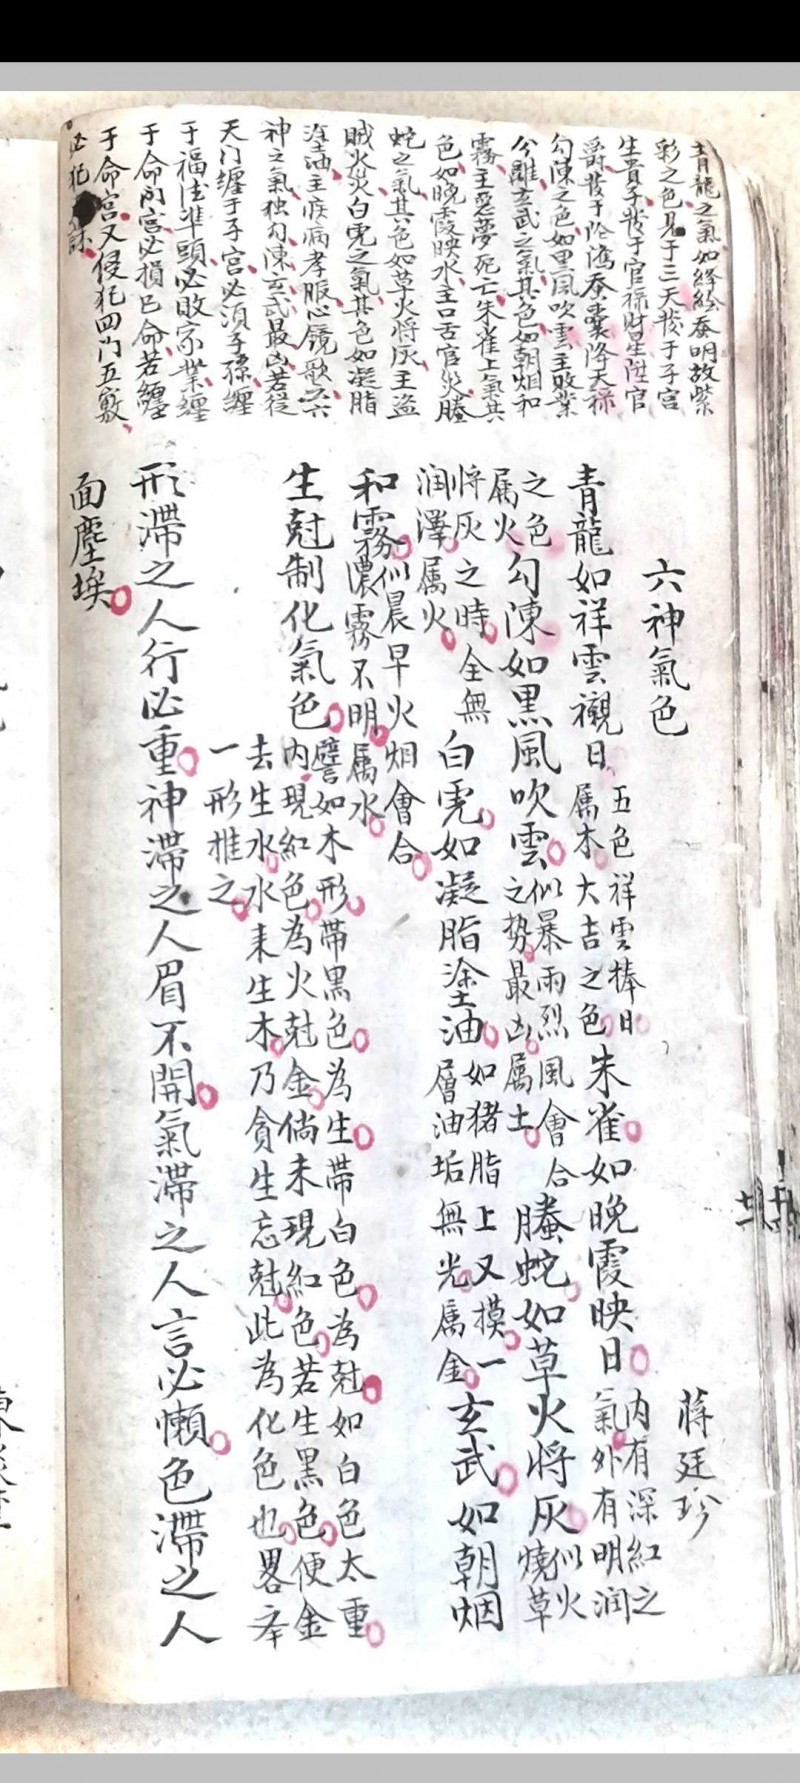 青龍之氣如絳繒蚕明故紫
彩之色見于三天发于子宫
生貴子发于官禄財星陞官
爵发于陰隲蚕囊降天禄
勾陳之色如黑風吹雲主敗業
分離玄武之氣其色如朝烟和
霧主惡夢死亡朱雀之氣其
色如晚霞映水主口舌官災螣
蛇之氣其色如草火将灰主盗
贼火災白虎之氣其色如凝脂
塗油主疾病孝服心镜歌云六
神之氣独勾陳玄武最凶若從
天门缠于子宫必須子孫缠
于福德準頭必敗家業缠
于命门宫必損己命若缠
于命宫又侵犯四门五竅
必犯訣
六神氣色
蒋廷珍
青龍如祥雲襯日
五色祥雲捧日
属木大吉之色
朱雀如晚霞映日
内有深紅之
氣外有明润
之色
属火
勾陳如黑風吹雲
似暴雨烈風會合
之势最凶属土
螣蛇如草火将灰
似火
燒草
将灰之時全無
润澤属火
白虎如凝脂塗油
如猪脂上又摸一
層油垢無光属金
玄武如朝烟
和霧
似晨早火烟會合
濃霧不明属水
生尅制化氣色
譬如木形帶黑色為生帶白色為尅如白色太重
内現紅色為火尅金倘未現紅色若生黑色便金
去生水水来生木乃貪生忘尅此為化色也畧舉
一形推之
形滞之人行必重神滞之人眉不開氣滞之人言必懶色滞之人
面塵埃